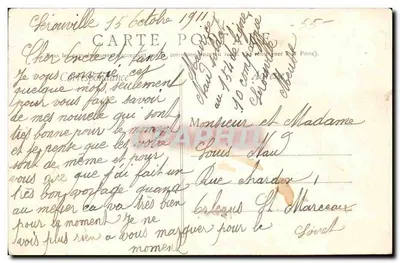 Chérouville 15 octobre 1911
55-
CARTE POSTALE
Correspondance
Cher oncle et tante
Je vous envoie cet
quelque mots seulement
pour vous faire savoir
de mes nouvelle qui sont
très bonne pour le moment
et je pense que les votre
sont de même et pour
vous dire que j'ai fait un
très bon voyage quant
au métier ca va très bien
pour le moment Je ne
vois plus rien a vous marquer pour le
moment
Nau soldat
au 151 de ligne
10 compagnie
Meuse
Monsieur et Madame
Louis Nau
Rue chardon 1
Orléans St. Marceau
Loiret